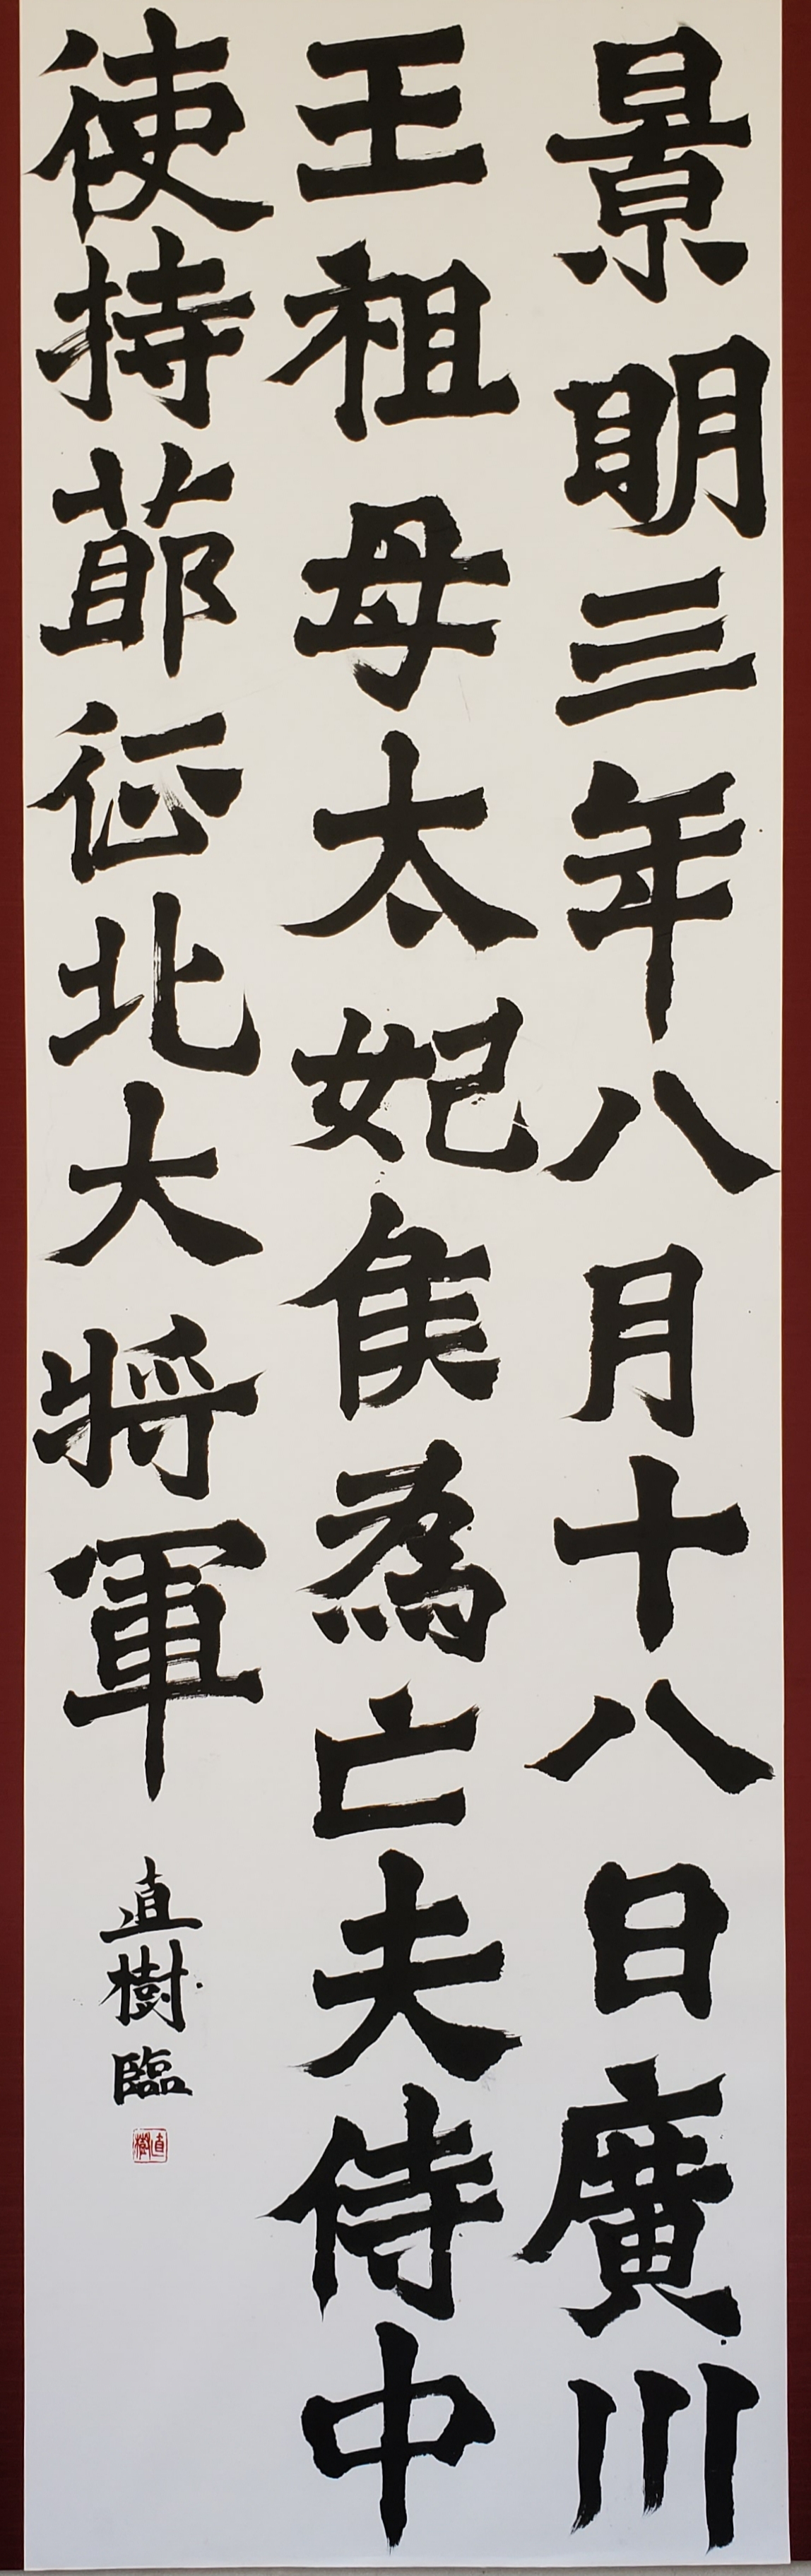 景明三年八月十八日廣川
王祖母太妃侯為亡夫侍中
使持節征北大將軍
直樹臨
直樹